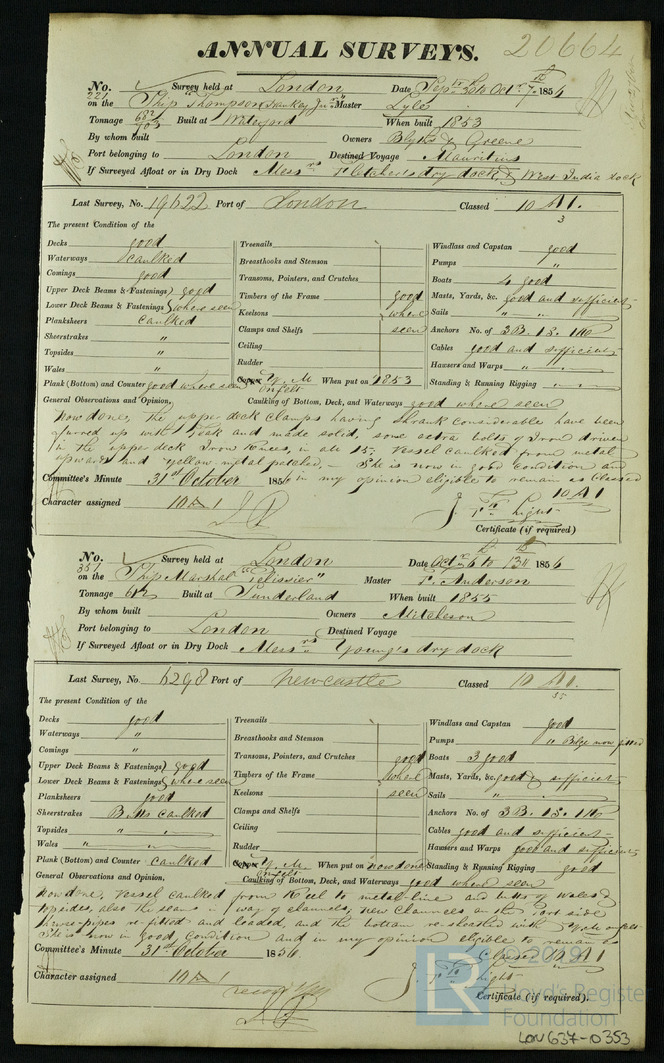 ANNUAL SURVEYS. 20664
No. 221 Survey held at London Date Sepr 30th Octr 7th 1856
on the Ship "Thompson Master Lyle
Tonnage 682/703 Built at Waterford When built 1853
By whom built Owners Blyth & Greene
Port belonging to London Destined Voyage Mauritius
If Surveyed Afloat or in Dry Dock Messrs Fletcher's dry dock & West India dock
Last Survey, No. 19622 Port of London Classed 10 A1.
3
The present Condition of the
Decks good Treenails Windlass and Capstan good
Waterways caulked Breasthooks and Stemson Pumps "
Comings good Transoms, Pointers, and Crutches Boats 4 good
Upper Deck Beams & Fastenings good Timbers of the Frame good Masts, Yards, &c. good and sufficient
Lower Deck Beams & Fastenings where seen Keelsons where Sails " " "
Planksheers caulked Clamps and Shelfs seen Anchors No. of 3B. 1S. 1K
Sheerstrakes " Ceiling Cables good and sufficient
Topsides " Rudder Hawsers and Warps " "
Wales " Y. M. on felt When put on 1853 Standing & Running Rigging " "
Plank (Bottom) and Counter good where seen
General Observations and Opinion, Caulking of Bottom, Deck, and Waterways good where seen
Now done, the upper deck clamps having shrank considerable have been
furred up with Teak and made solid, some extra bolts of Iron driven
in the upper deck Iron knees, in all 15. Vessel caulked from metal
upwards and yellow metal patched, - She is now in good condition and
in my opinion eligible to remain as Classed
10 A1
Committee's Minute 31st October 1856
Character assigned 10 A 1
J. Light
Certificate (if required)
No. 351 Survey held at London Date Octr 6th 13th 1856
on the Ship Marshal "Pelissier" Master Anderson
Tonnage Built at Sunderland When built 1855
By whom built Owners Mitcheson
Port belonging to London Destined Voyage
If Surveyed Afloat or in Dry Dock Messrs Young's dry dock
Last Survey, No. 6298 Port of Newcastle Classed 10 A1.
55
The present Condition of the
Decks good Treenails Windlass and Capstan good
Waterways " Breasthooks and Stemson Pumps " Bilge now fitted
Comings " Transoms, Pointers, and Crutches good Boats 3 good
Upper Deck Beams & Fastenings good Timbers of the Frame where Masts, Yards, &c. good & sufficient
Lower Deck Beams & Fastenings where seen Keelsons seen Sails " "
Planksheers good Clamps and Shelfs Anchors No. of 3B. 1S. 1K
Sheerstrakes Butts caulked Ceiling Cables good and sufficient
Topsides " " Rudder Hawsers and Warps good and sufficient
Wales " " Y. M. on felt When put on now done Standing & Running Rigging good
Plank (Bottom) and Counter caulked
General Observations and Opinion, Caulking of Bottom, Deck, and Waterways good where seen
Now done, Vessel caulked from Keel to metal line and butts of wales &
topsides, also the seams in way of channels, new Channels on the port side
hawse-pipes refitted and leaded, and the bottom re-sheathed with
She is now in good condition and in my opinion eligible to remain as
Classed 10 A1
Committee's Minute 31st October 1856
Character assigned 10 A 1
J. Light
Certificate (if required).
© 2019
Lloyd's Register
Foundation
LR
LON637-0353